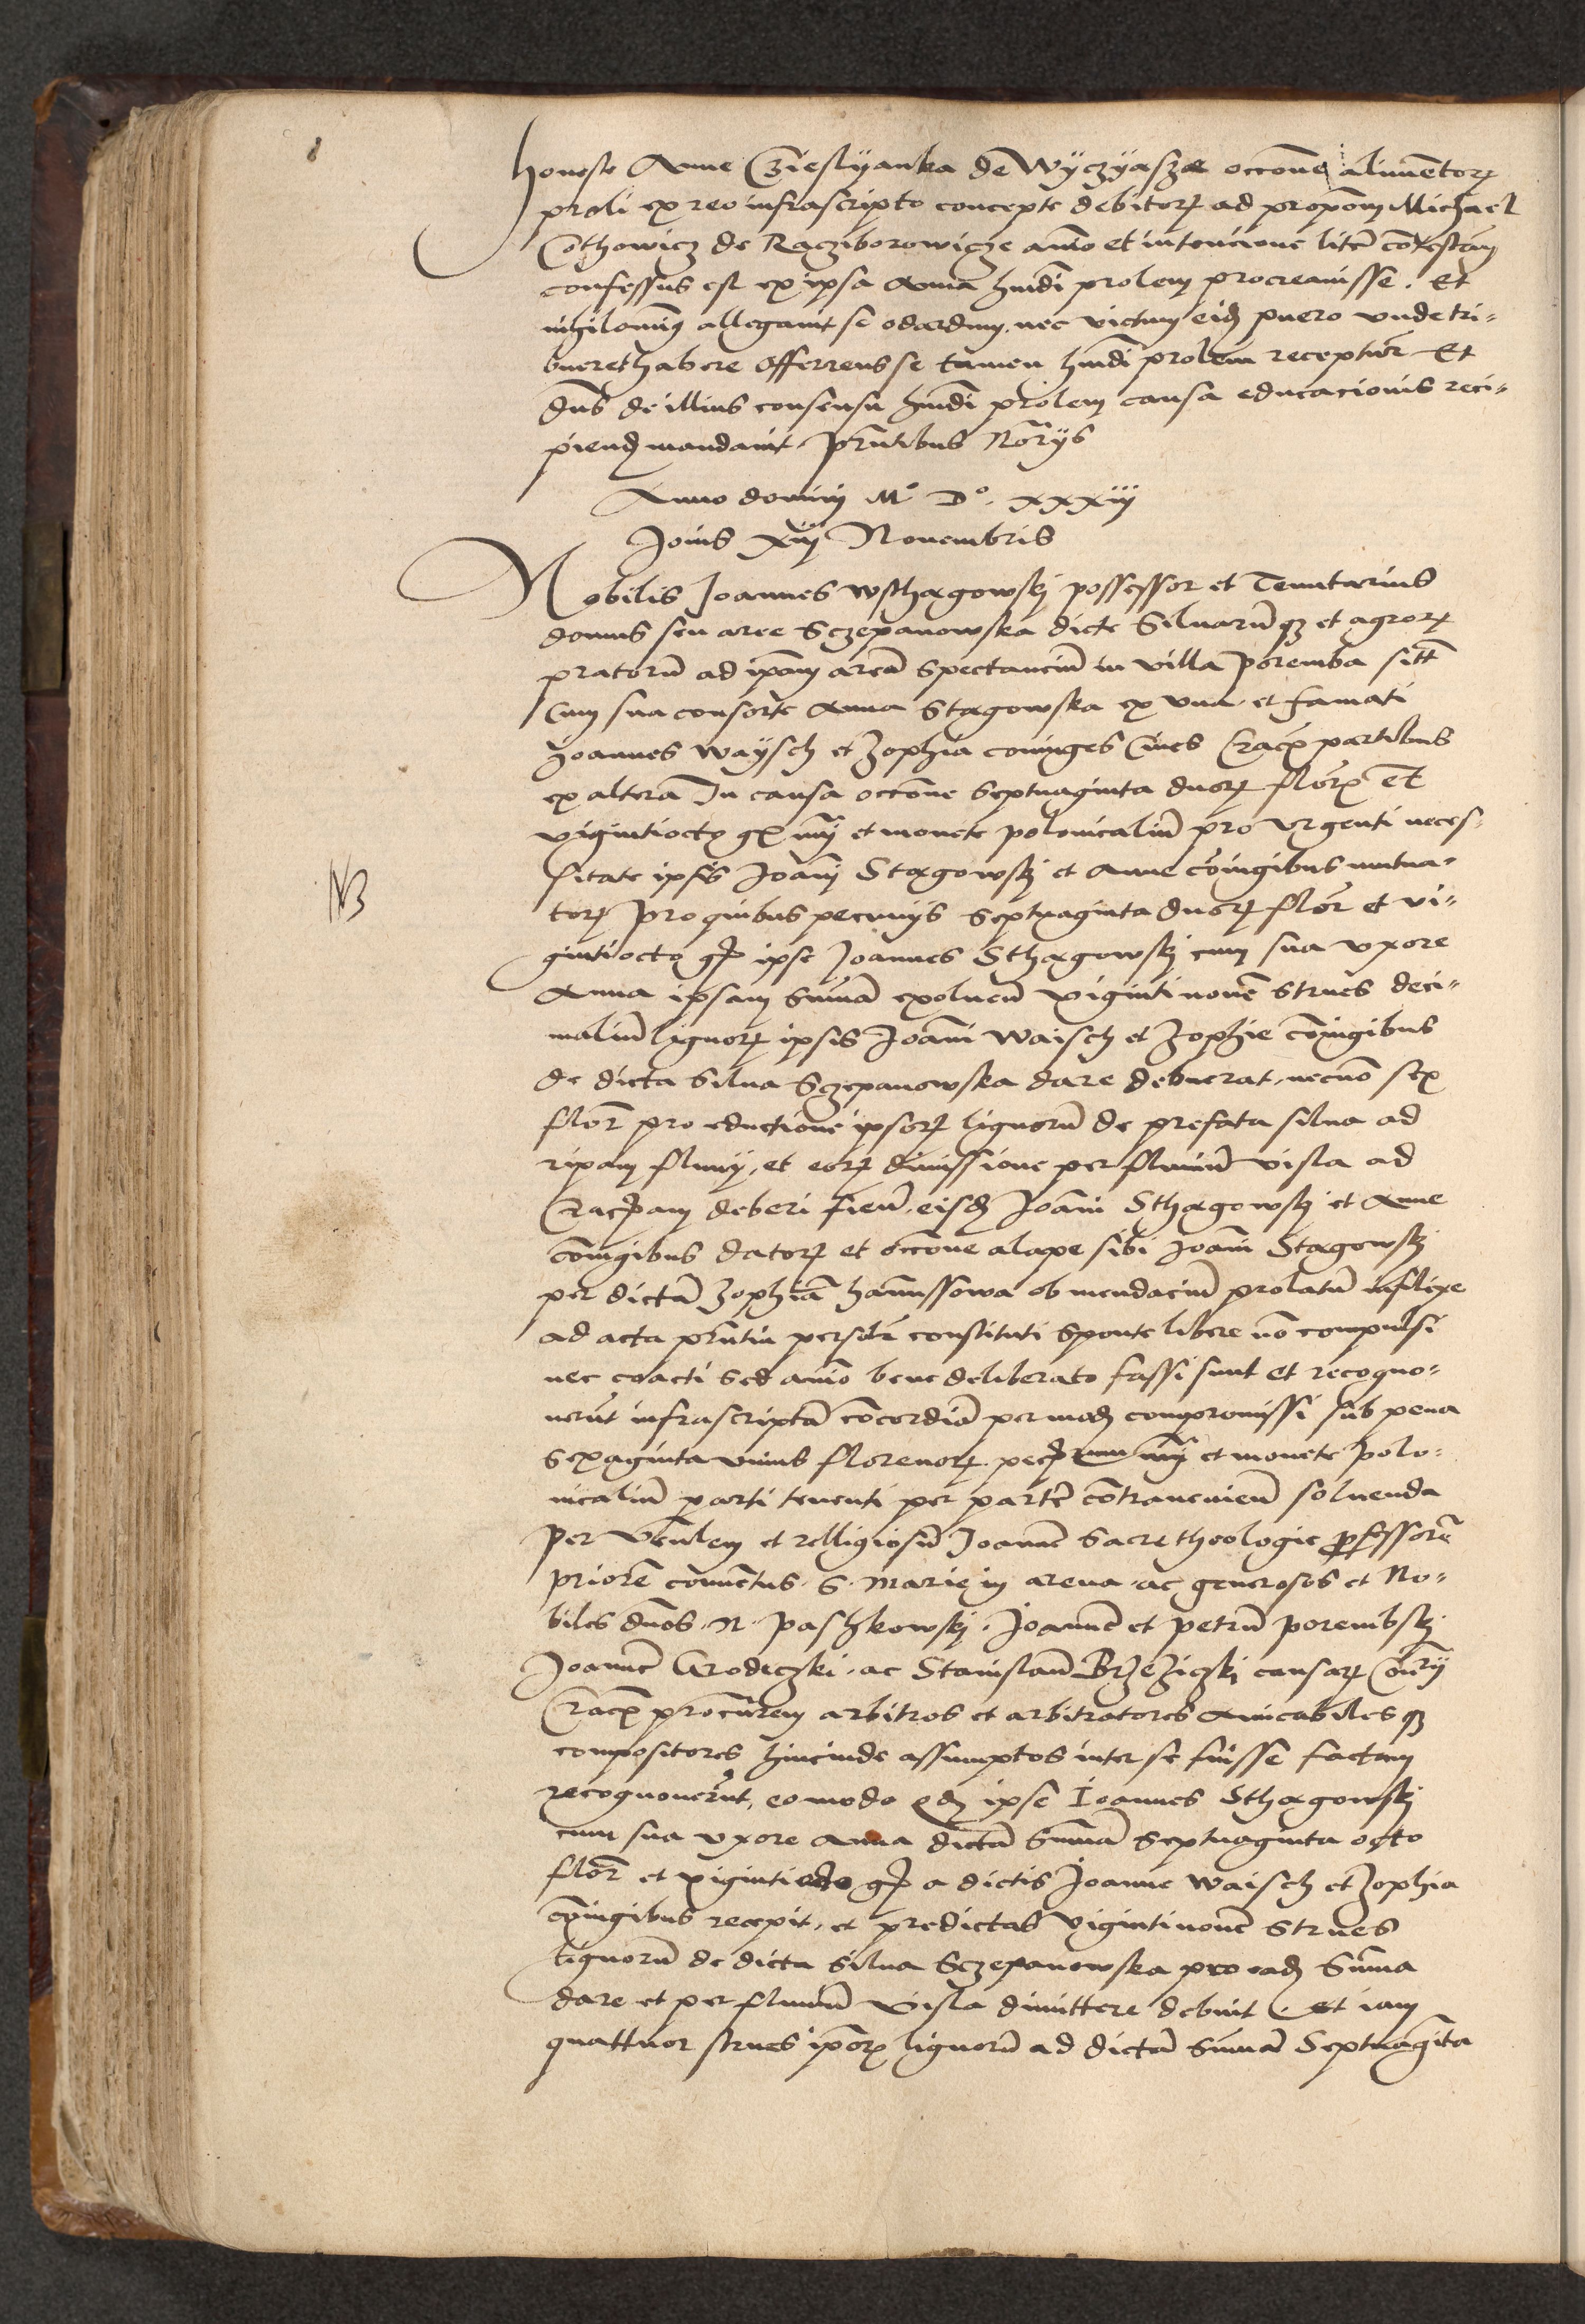 honeste Anne Czieslyanka de Wyczyasze occone alimentorꝝ
proli ex reo infrascripto concepte debitorꝝ ad proponem Michael
Cothowicz de Racziborowicze animo et intencione litem contestan
confessus est ex ipsa Anna humdi prolem procreauisse. Et
nihilominus allegauit se nec victum eidem puero vnde tri-
bueret habere Offerens se tamen humdi prolem receptur Et
dns de illius consensu humdi prolem causa educacionis reci-
piend mandauit. pntibus Notariis
Anno domini M° D°. xxxiij
Jouis xiij Nouembris
Nobilis Joannes Wsthargowskj possessor et Tenutarius
domus seu aree Sczepanowska dicte Siluarumqꝫ et agrorꝝ
pratorum ad ipam aream spectancium in villa Poremba sitt
Cum sua consorte Anna Stargowska ex vna. et famati
Joannes Waysch et Zophia coniuges Ciues Crac partibus
ex altera In causa occone septuaginta duorꝝ florꝝ et
vigintiocto gr et monete polonicalium pro vrgenti neces-
sitate ipsis Joanni Stargowskj et Anne coniugibus mutua-
NB
torꝝ pro quibus pecunijs septuaginta duorꝝ flor et vi-
gintiocto gr ipse Joannes Sthargowskj cum sua vxore
Anna ipsam summam exoluen vigintinouem strues deci-
malium lignorꝝ ipsis Joanni Waisch et Zophie coniugibus
de dicta silua Sczepanowska dare debuerat, necnon sex
flor pro eductione ipsorꝝ lignorum de prefata silua ad
ripam fluuij, et eorꝝ dimissione per fluuium visla ad
Cracouiam deberi fien, eisdem Joanni Sthargowskj et Anne
coniugibus datorꝝ et occone alape sibi Joanni Stargowskj
per dictam Zophiam hanussowa ob mendacium prolatum inflixe
ad acta pntia personaliter constituti sponte libere non compulsi
nec coacti sed animo bene deliberato fassi sunt et recogno-
uerunt infrascriptam concordiam per modum compromissi sub pena
sexaginta vnius florenorꝝ et monete Polo-
nicalium parti tenenti per partem contrauenien soluenda
per Venlem et relligiosum Joannem Sacre theologie professorem
priorem conuentus. S. Marie in arena. ac generosos et No-
biles dnos. N. Paschkowskj. Joannem et Petrum Porembskj
Joannem Grodeczki. ac Stanislaum Brzeziczkj causarꝝ Consistorij
Crac procuratorem arbitros et arbitratores amicabilesqꝫ
compositores hincinde assumptos inter se fuisse factam
recognouerunt, eo modo qd ipse Joannes Sthargowskj
cum sua vxore Anna dictam summam septuaginta octo
flor et vigintiocto gr a dictis Joanne Waisch et Zophia
coniugibus recepit, et predictas vigintinouem strues
lignorum de dicta silua Sczepanowska pro eadem summa
dare et per fluuium visla dimittere debuit. Et iam
quattuor strues iporꝝ lignorum ad dictam summam septuaginta